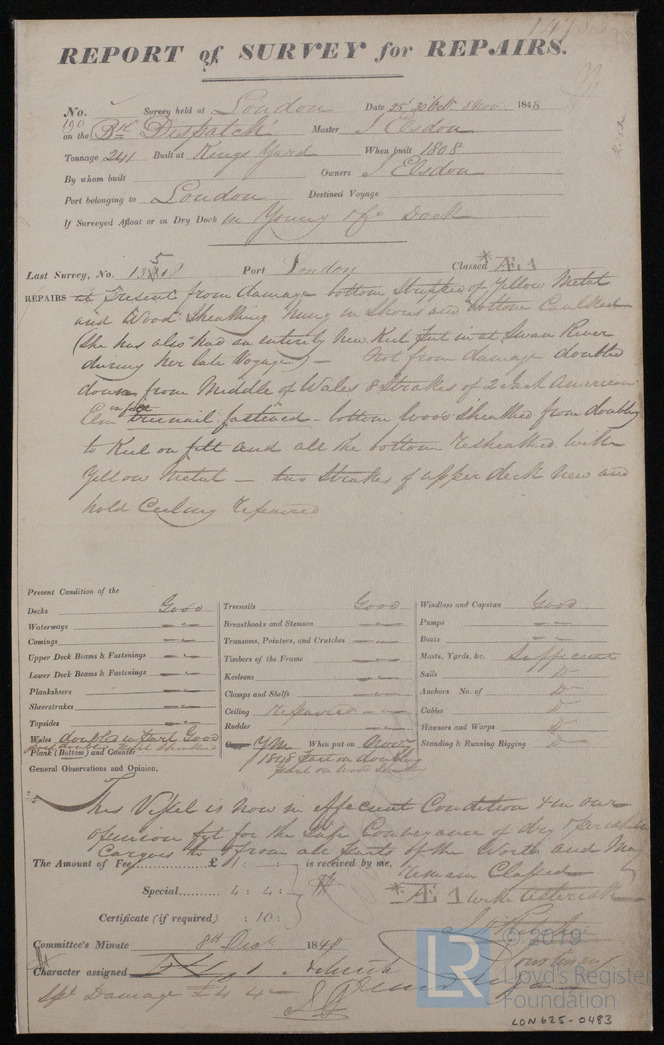 REPORT of SURVEY for REPAIRS.
No. Survey held at London Date 25 Oct Nov. 1848
on the Bk Dispatch Master J Elsdon
Tonnage 241 Built at Kings Yard When built 1808
By whom built Owners J Elsdon
Port belonging to London Destined Voyage
If Surveyed Afloat or in Dry Dock in Young & Co Dock
Last Survey, No. Port London Classed *Æ.1
REPAIRS at Present from damage bottom Stripped of Yellow Metal
and Wood Sheathing hung in Shores and bottom Caulked
(She has also had an entirely New Keel put in at Swan River
during her late Voyage) — Not from damage doubled
down from Middle of Wales 8 Strakes of 2 Inch American
Elm treenail fastened - bottom wood sheathed from doubling
to Keel on felt and all the bottom resheathed with
Yellow Metal — two Strakes of upper deck New and
hold Ceiling repaired
Present Condition of the
Decks Good
Waterways
Comings
Upper Deck Beams & Fastenings
Lower Deck Beams & Fastenings
Planksheers
Sheerstrakes
Topsides
Wales doubled in part Good
Plank (Bottom) and Counter
Treenails Good
Breasthooks and Stemson
Transoms, Pointers, and Crutches
Timbers of the Frame
Keelsons
Clamps and Shelfs
Ceiling repaired
Rudder
Copper Y.M. When put on Nov
1848 Part on doubling
part on wood
Windlass and Capstan Good
Pumps
Boats
Masts, Yards, &c. Sufficient
Sails Do
Anchors No. of Do
Cables Do
Hawsers and Warps Do
Standing & Running Rigging Do
General Observations and Opinion,
This Vessel is now in efficient Condition & in our
opinion fit for the Safe Conveyance of dry & perishable
Cargoes to & from all parts of the World and May
remain Classed
*Æ 1 with asterisk
The Amount of Fee £ 1 : : is received by me,
Special 4 : 4 :
Certificate (if required) : 10 :
Committee's Minute 8th Decr 1848
Character assigned
Spl Damage £4 4
LR
© 2019
Lloyd's Register
Foundation
LON625-0483